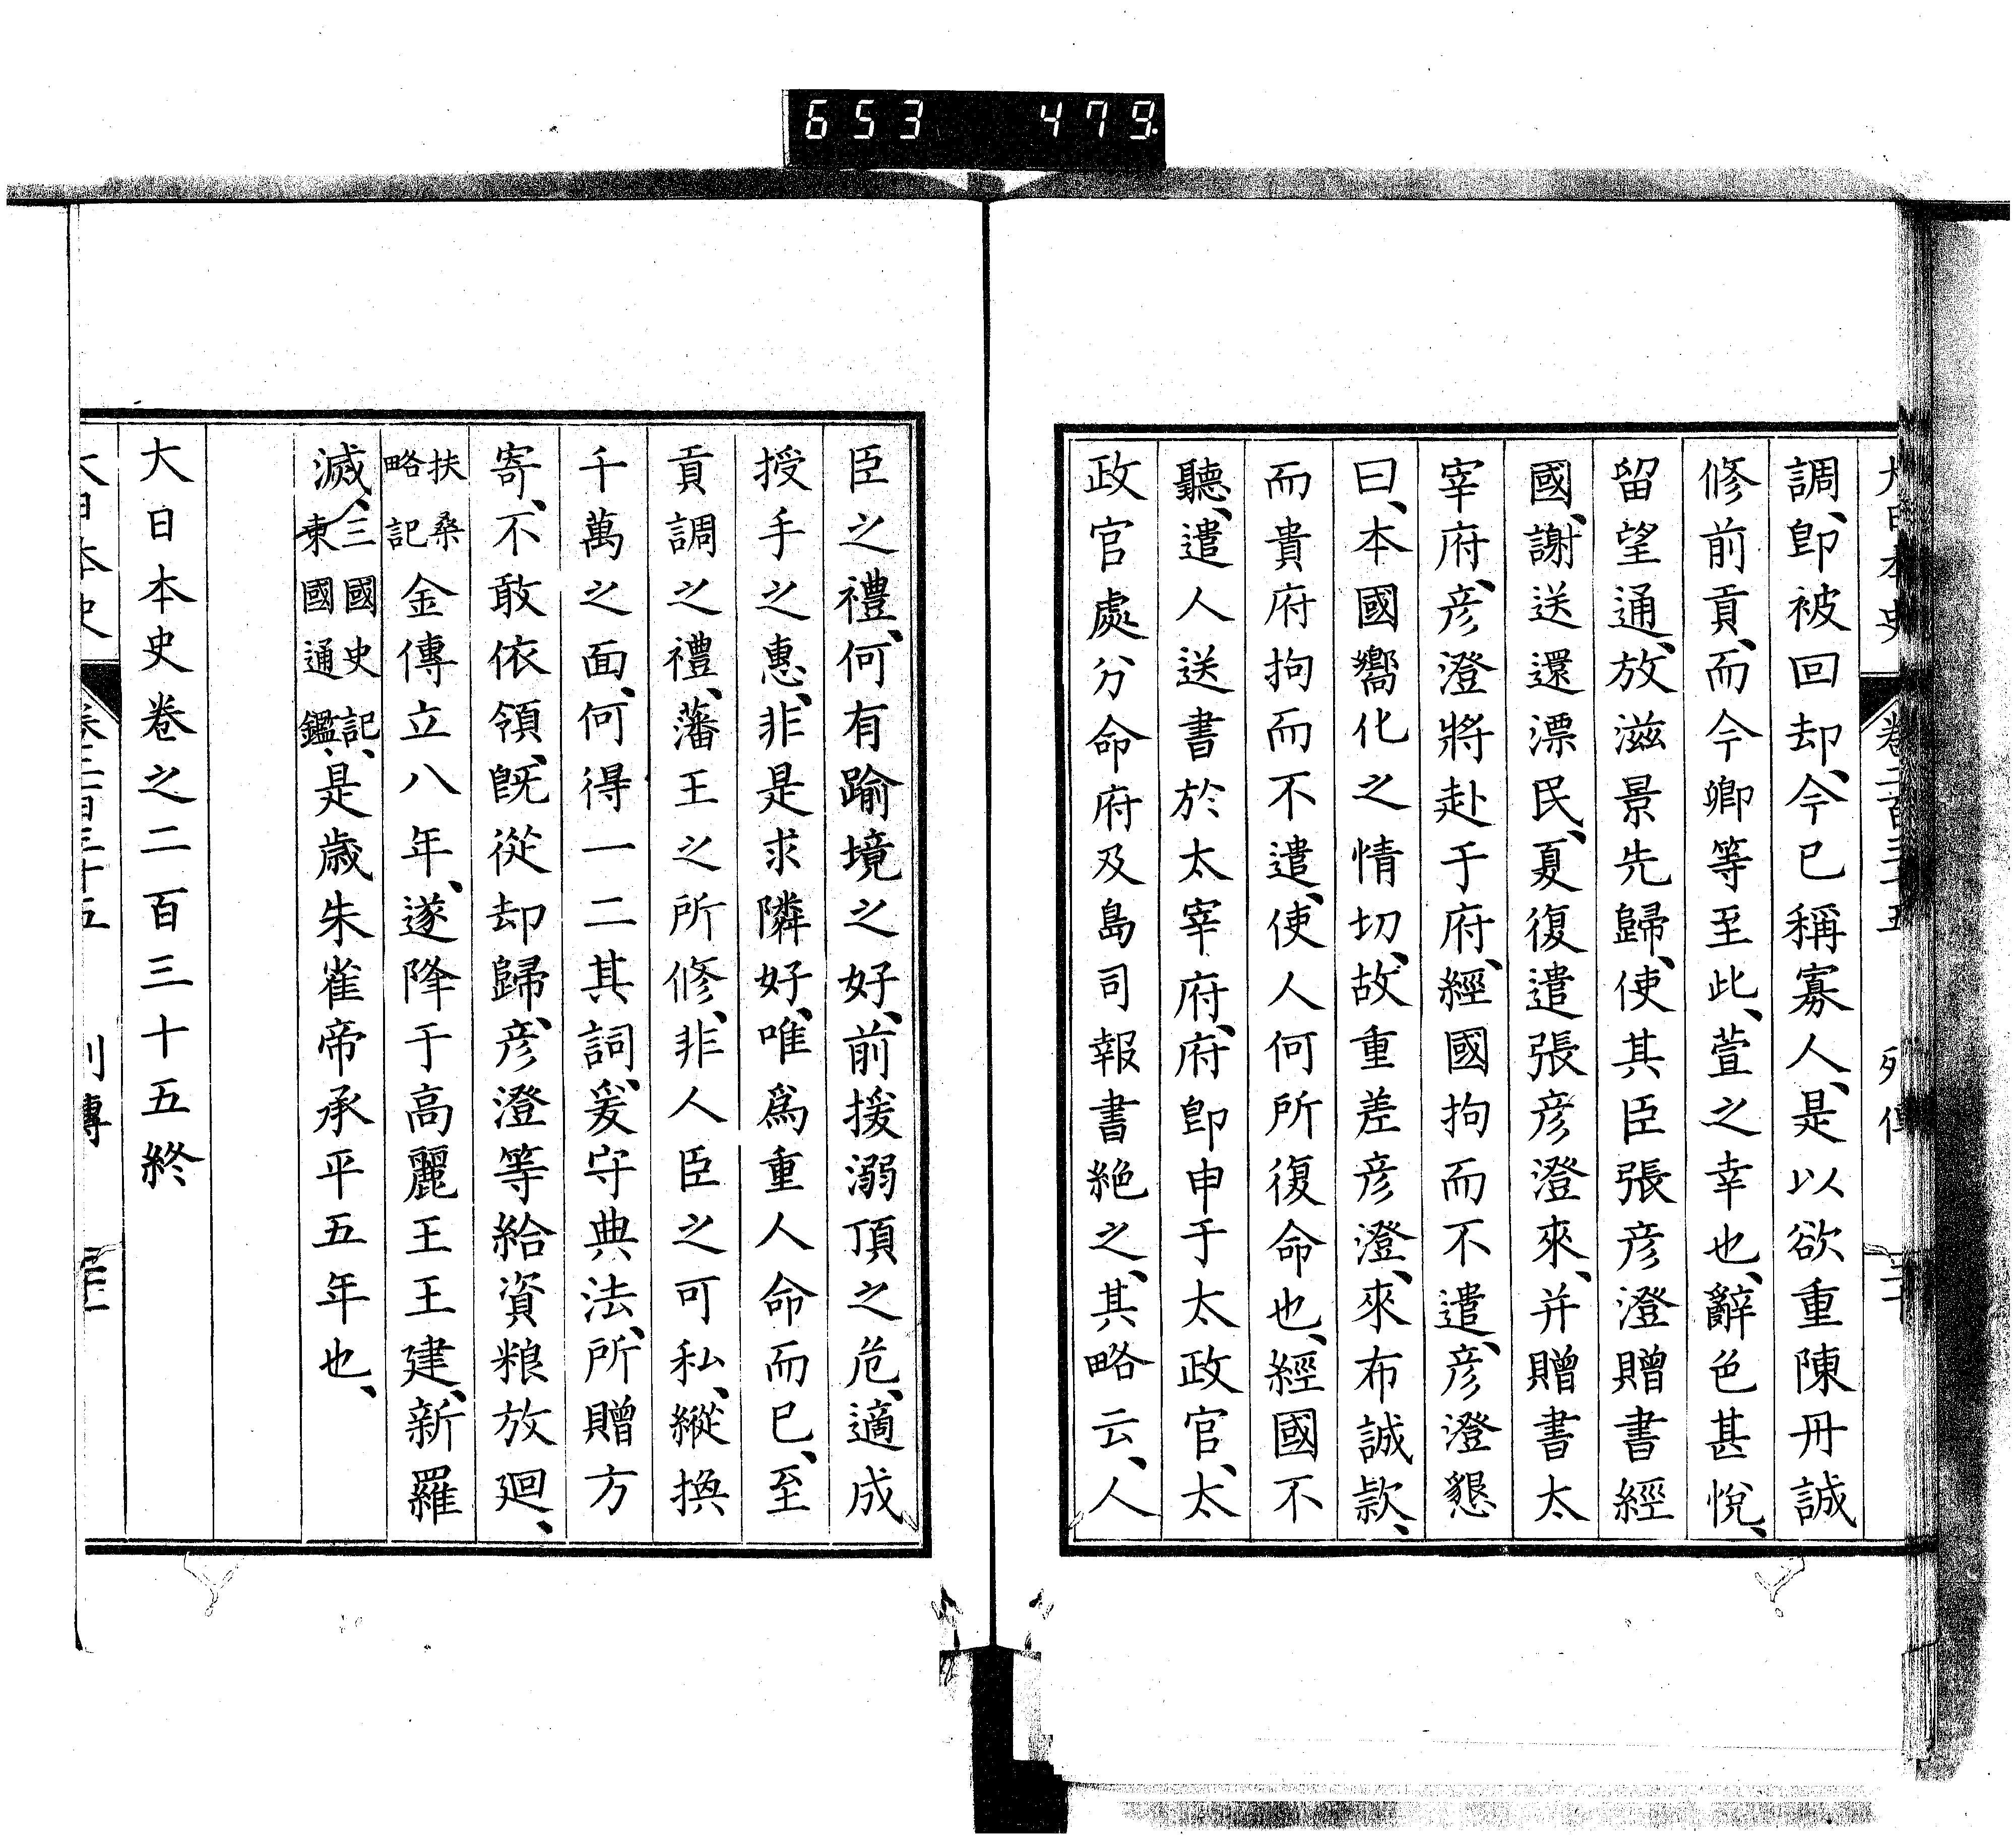 653 479
調、卽被回却、今已稱寡人、是以欲重陳丹誠
修前貢、而今卿等至此、萱之幸也、辭色甚悅、
留望通、放滋景先歸、使其臣張彦澄贈書經
國、謝送還漂民、夏復遣張彦澄來、并贈書太
宰府、彦澄將赴于府、經國拘而不遣、彦澄懇
曰、本國嚮化之情切、故重差彦澄、來布誠款、
而貴府拘而不遣、使人何所復命也、經國不
聽、遣人送書於太宰府、府卽申于太政官、太
政官處分命府及島司報書絕之、其略云、人
臣之禮、何有踰境之好、前援溺頂之危、適成
授手之惠、非是求隣好、唯爲重人命而已、至
貢調之禮、藩王之所修、非人臣之可私、縱換
千萬之面、何得一二其詞、爰守典法、所贈方
寄、不敢依領、旣從却歸、彦澄等給資粮放廻、
扶桑
略記
金傅立八年、遂降于高麗王王建、新羅
滅、
三國史記、
東國通鑑、
是歲朱雀帝承平五年也、
大日本史卷之二百三十五終